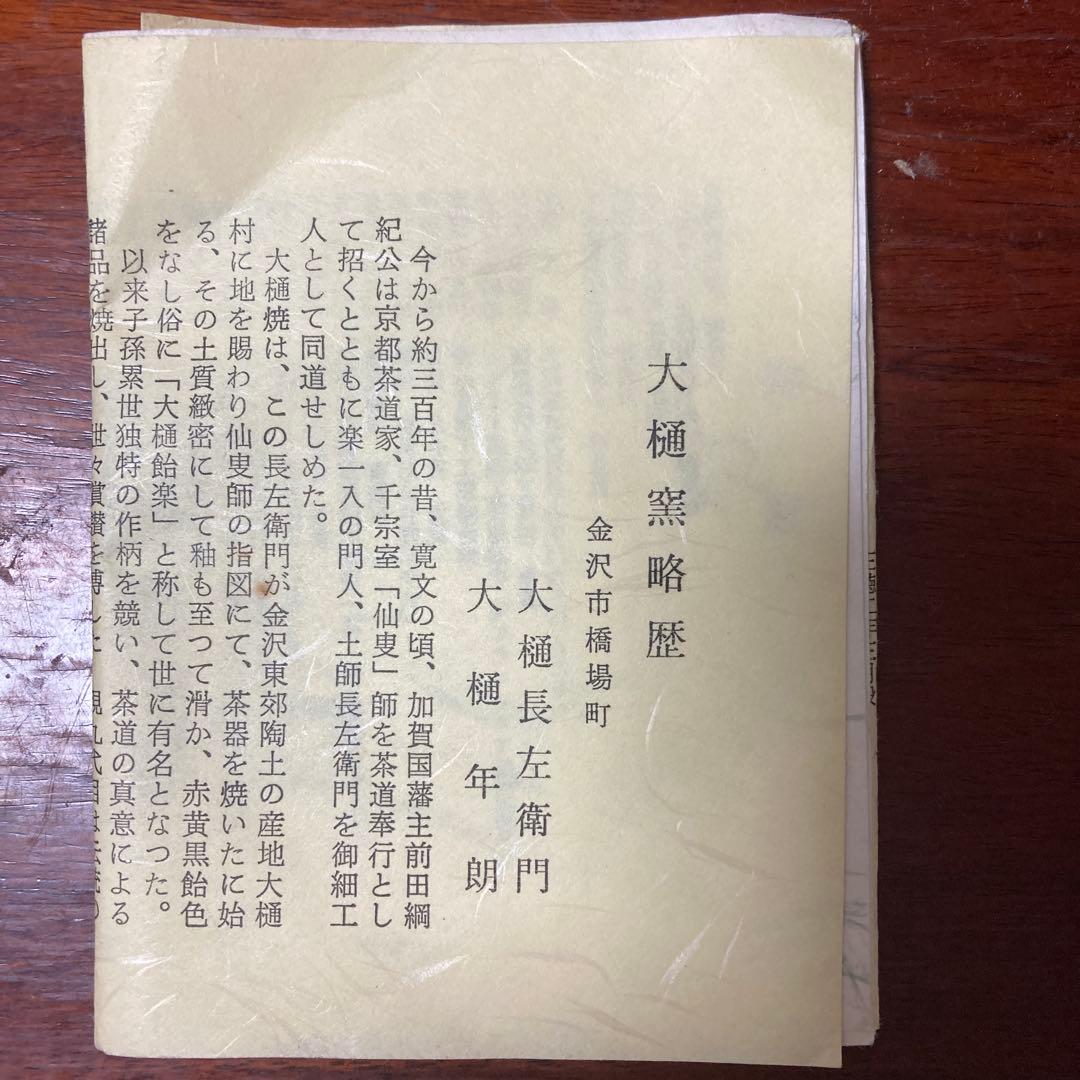 大樋窯略歴
金沢市橋場町
大樋長左衛門
大樋年朗
今から約三百年の昔、寛文の頃、加賀国藩主前田綱
紀公は京都茶道家、千宗室「仙叟」師を茶道奉行とし
て招くとともに楽一入の門人、土師長左衛門を御細工
人として同道せしめた。
大樋焼は、この長左衛門が金沢東郊陶土の産地大樋
村に地を賜わり仙叟師の指図にて、茶器を焼いたに始
る、その土質緻密にして釉も至つて滑か、赤黄黒飴色
をなし俗に「大樋飴楽」と称して世に有名となつた。
以来子孫累世独特の作柄を競い、茶道の真意による
諸品を焼出し、世々賞讃を博した